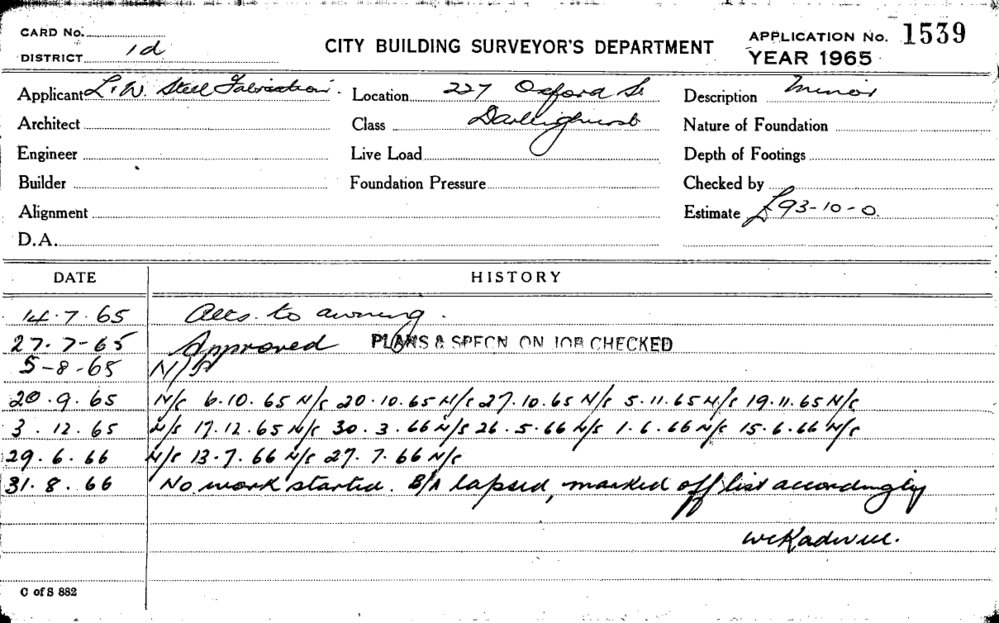 CARD No.
DISTRICT 1d
CITY BUILDING SURVEYOR'S DEPARTMENT
APPLICATION No. 1539
YEAR 1965
Applicant L.W. Steel Fabrication. Location 227 Oxford St Description Minor
Architect Class Darlinghurst Nature of Foundation
Engineer Live Load Depth of Footings
Builder Foundation Pressure Checked by
Alignment Estimate £93-10-0.
D.A.
DATE HISTORY
14.7.65 Alts. to awning.
27.7-65 Approved PLANS & SPECN ON JOB CHECKED
5-8-65 N/S
20.9.65 N/S 6.10.65 N/S 20.10.65 N/S 27.10.65 N/S 5.11.65 N/S 19.11.65 N/S
3.12.65 N/S 17.12.65 N/S 30.3.66 N/S 26.5.66 N/S 1.6.66 N/S 15.6.66 N/S
29.6.66 N/S 13.7.66 N/S 27.7.66 N/S
31.8.66 No work started. B/A lapsed, marked off list accordingly
C of S 882